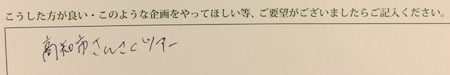 こうした方が良い・このような企画をやってほしい等、ご要望がございましたらご記入ください。
高知市さんさくツアー